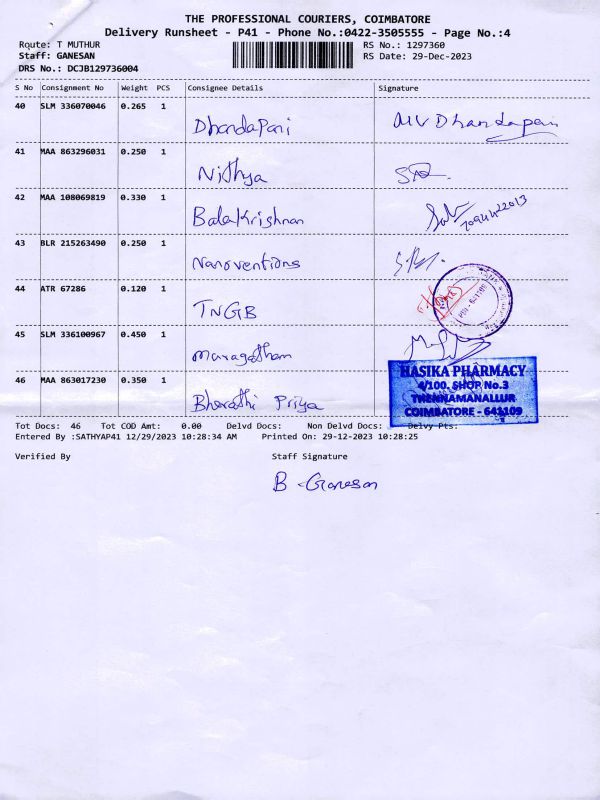 THE PROFESSIONAL COURIERS, COIMBATORE
Delivery Runsheet - P41 - Phone No.:0422-3505555 - Page No.:4
Route: T MUTHUR RS No.: 1297360
Staff: GANESAN RS Date: 29-Dec-2023
DRS No.: DCJB129736004
S No Consignment No Weight PCS Consignee Details Signature
40 SLM 336070046 0.265 1
Dhandapani MV Dhandapani
41 MAA 863296031 0.250 1
Nithya
42 MAA 108069819 0.330 1
Balakrishnan
43 BLR 215263490 0.250 1
Nanoventions
44 ATR 67286 0.120 1
TNGB
45 SLM 336100967 0.450 1
Maragatham
46 MAA 863017230 0.350 1
Bharathi Priya
HASIKA PHARMACY
4/100. SHOP No.3
THENNAMANALLUR
COIMBATORE - 641109
Tot Docs: 46 Tot COD Amt: 0.00 Delvd Docs: Non Delvd Docs: Delvy Pts:
Entered By :SATHYAP41 12/29/2023 10:28:34 AM Printed On: 29-12-2023 10:28:25
Verified By Staff Signature
B. Ganesan